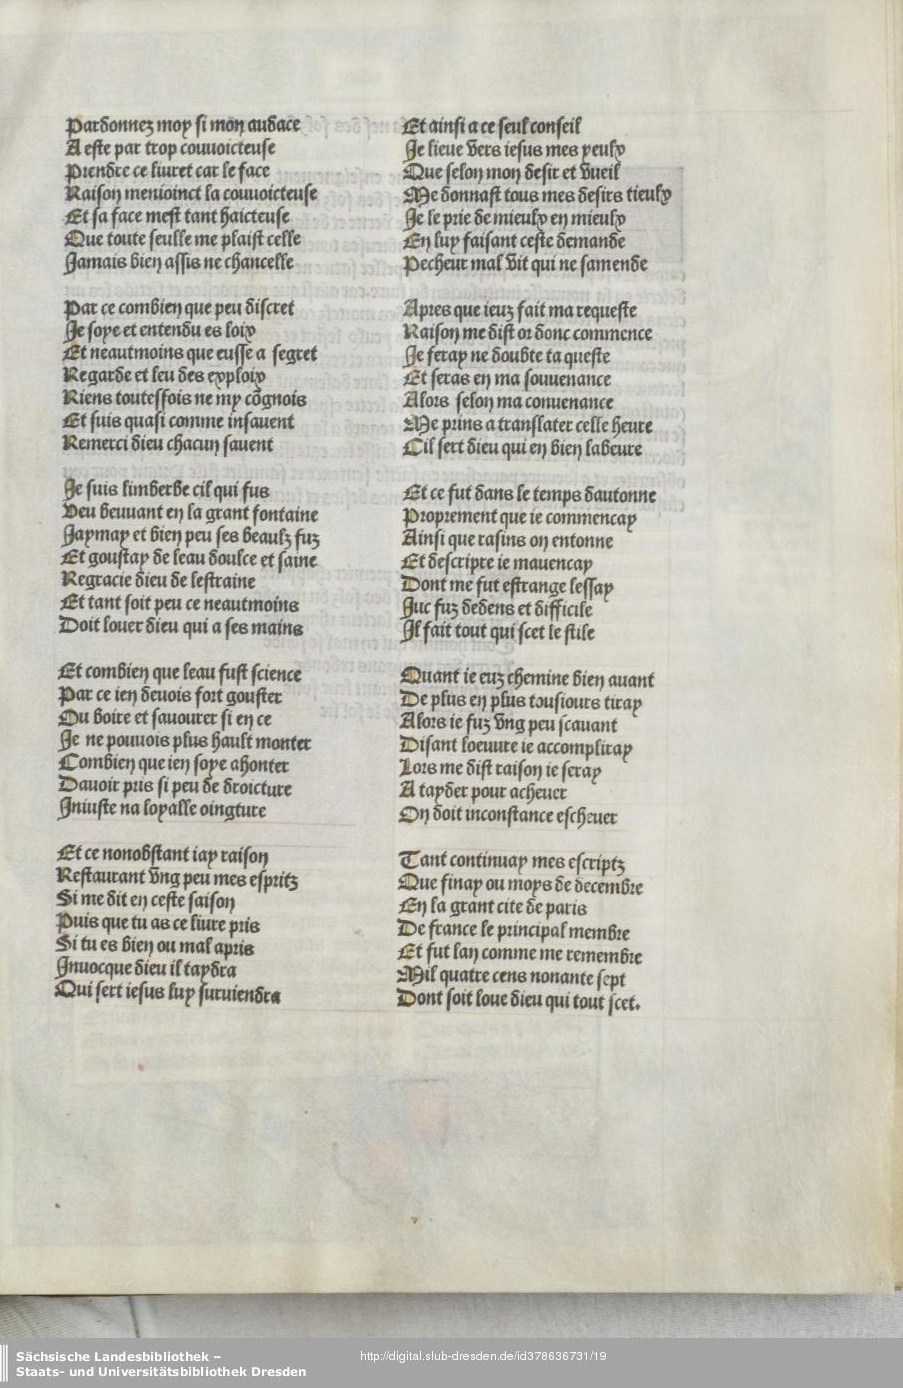 Pardonnez moy si mon audace
A este par trop couuoicteuse
Prendre ce liuret car le face
Raison menioinct la couuoicteuse
Et sa face mest tant haicteuse
Que toute seulle me plaist celle
Jamais bien assis ne chancelle
Par ce combien que peu discret
Je soye et entendu es loix
Et neautmoins que eusse a segret
Regarde et leu des exploix
Riens toutesfois ne my cõgnois
Et suis quasi comme insauent
Remerci dieu chacun sauent
Je suis limberbe cil qui fus
Veu beuuant en la grant fontaine
Jaymay et bien peu ses beaulz fuz
Et goustay de leau doulce et saine
Regracie dieu de lestraine
Et tant soit peu ce neautmoins
Doit louer dieu qui a ses mains
Et combien que leau fust science
Par ce ien deuois fort gouster
Ou boire et sauourer si en ce
Je ne pouuois plus hault monter
Combien que ien soye ahonter
Dauoir pris si peu de droicture
Iniuste na loyalle oingture
Et ce nonobstant iay raison
Restaurant vng peu mes espritz
Si me dit en ceste saison
Puis que tu as ce liure pris
Si tu es bien ou mal apris
Inuocque dieu il taydra
Qui sert iesus luy suruiendra
Et ainsi a ce seul conseil
Je lieue vers iesus mes yeulx
Que selon mon desir et vueil
Me donnast tous mes desirs tieulx
Je le prie de mieulx en mieulx
En luy faisant ceste demande
Pecheur mal vit qui ne samende
Apres que ieuz fait ma requeste
Raison me dist or donc commence
Je feray ne doubte ta queste
Et seras en ma souuenance
Alors selon ma conuenance
Me prins a translater celle heure
Cil sert dieu qui en bien labeure
Et ce fut dans le temps dautonne
Proprement que ie commencay
Ainsi que rasins on entonne
Et descripre ie mauencay
Dont me fut estrange lessay
Iuc fuz dedens et difficile
Il fait tout qui scet le stile
Quant ie euz chemine bien auant
De plus en plus tousiours tiray
Alors ie fuz vng peu scauant
Disant loeuure ie accompliray
Lors me dist raison ie seray
A tayder pour acheuer
On doit inconstance escheuer
Tant continuay mes escriptz
Que finay ou moys de decembre
En la grant cite de paris
De france le principal membre
Et fut lan comme me remembre
Mil quatre cens nonante sept
Dont soit loue dieu qui tout scet.
Sächsische Landesbibliothek –
Staats- und Universitätsbibliothek Dresden
http://digital.slub-dresden.de/id378636731/19